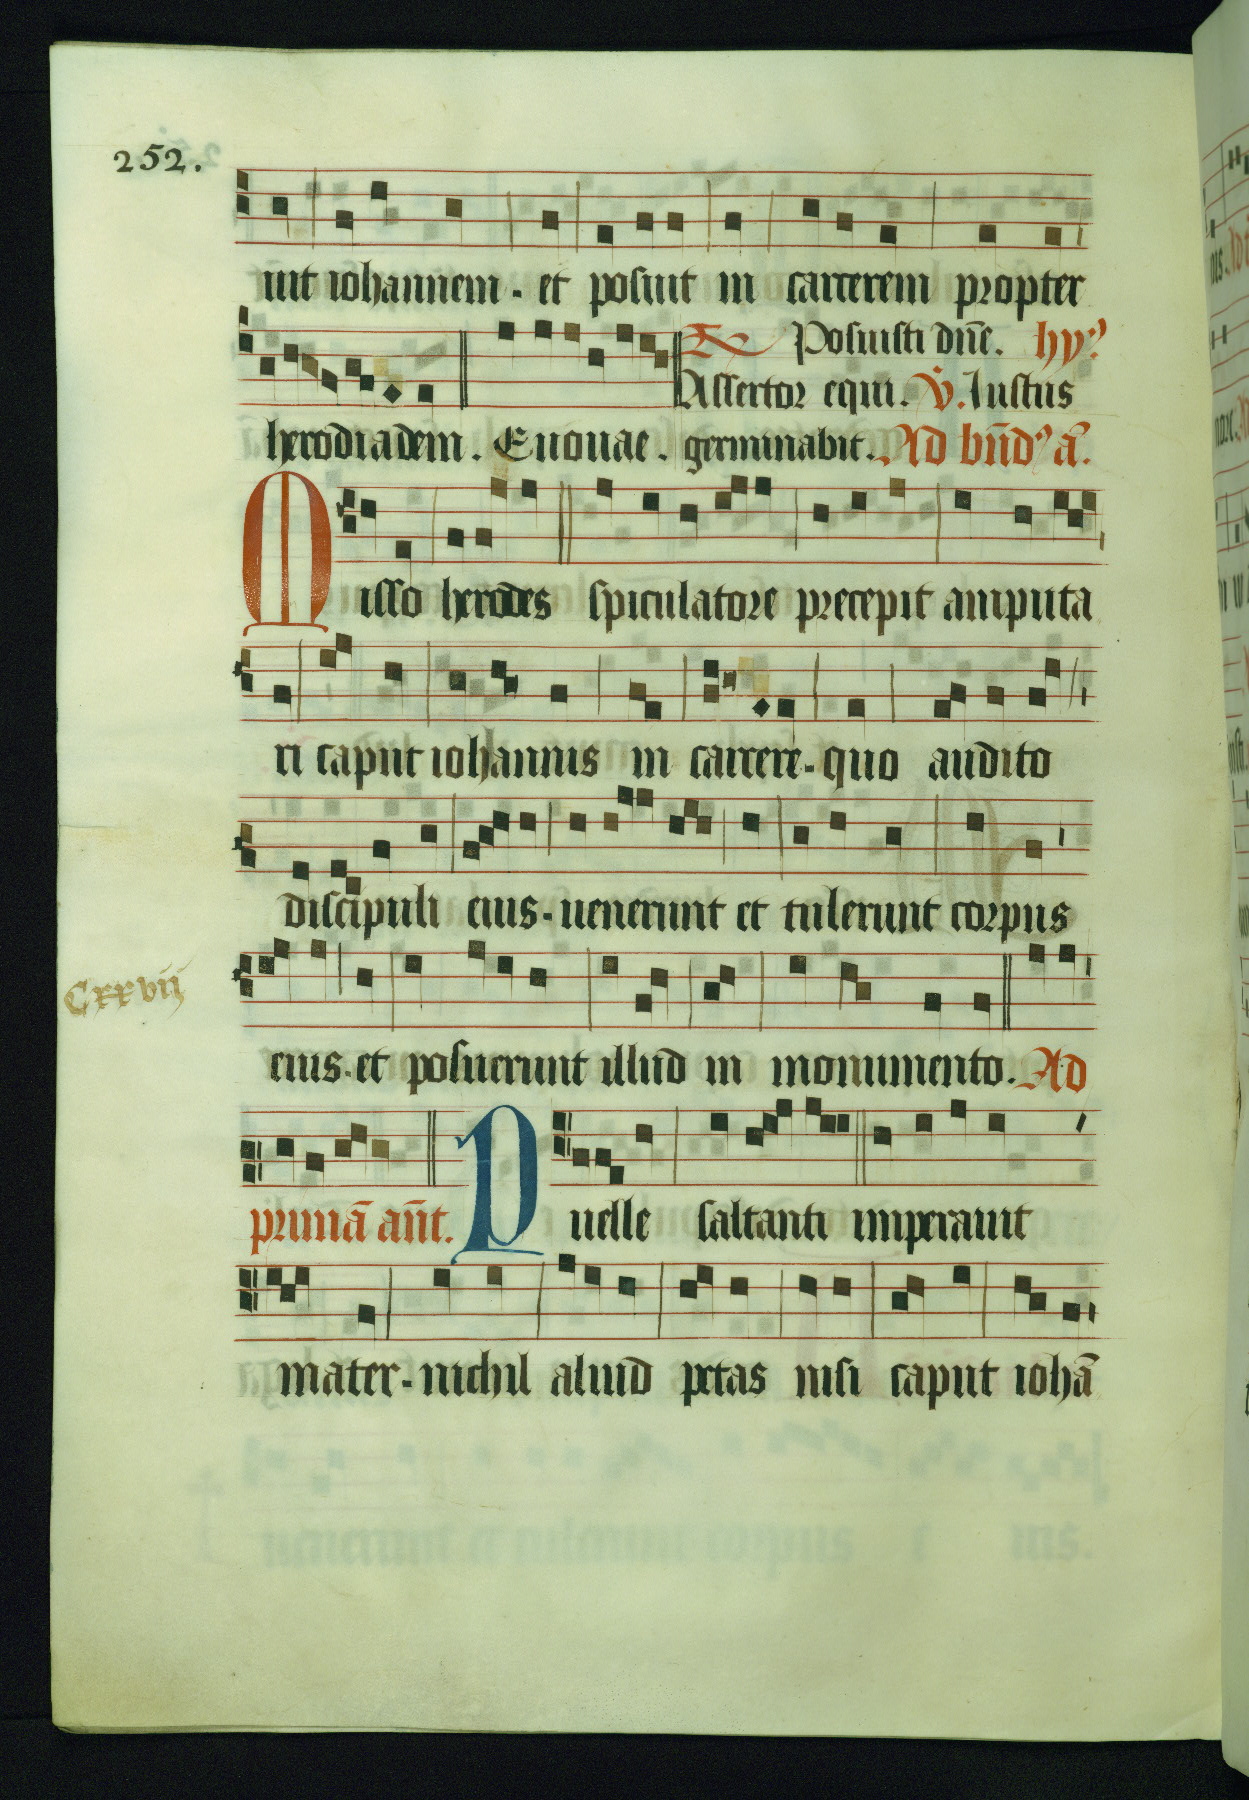 252.
uit iohannem. et posuit in carcerem propter
R Posuisti dñe. hy⁹
Assertor equi. v̇. Iustus
herodiadem. Euouae. germinabit. Ad bñd⁹ ā.
Misso herodes spiculatore precepit amputa
ri caput iohannis in carcere. quo audito
discipuli eius. uenerunt et tulerunt corpus
Cxxvij
eius. et posuerunt illud in monumento. Ad
primā añt. Puelle saltanti imperauit
mater. nichil aliud petas nisi caput iohā